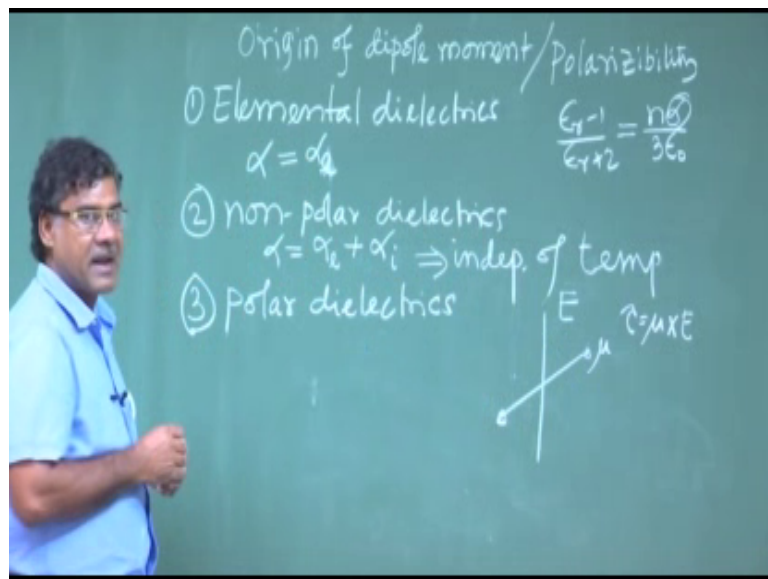 Origin of dipole moment/Polarizibility
① Elemental dielectrics
α = αe
εr-1/εr+2 = nα/3ε0
② non-polar dielectrics
α = αe + αi ⇒ indep. of temp
③ polar dielectrics
E
τ = μ × E
μ